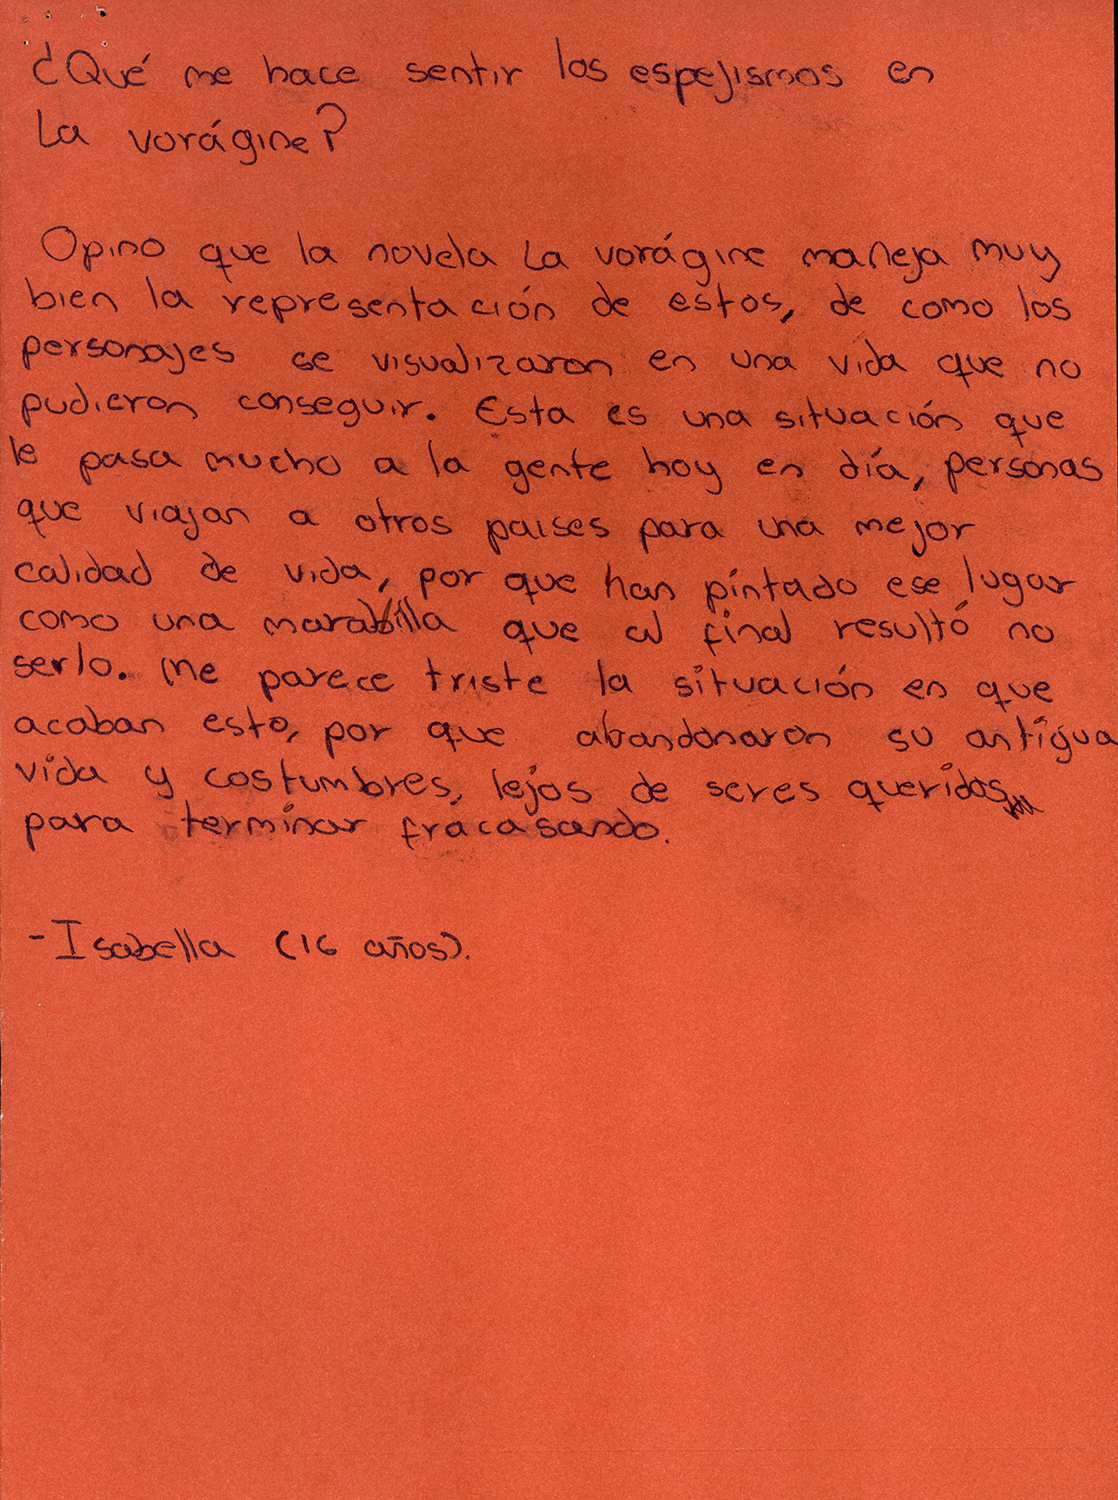 ¿Qué me hace sentir los espejismos en
La vorágine?
Opino que la novela La vorágine maneja muy
bien la representación de estos, de como los
personajes se visualizaron en una vida que no
pudieron conseguir. Esta es una situación que
le pasa mucho a la gente hoy en día, personas
que viajan a otros paises para una mejor
calidad de vida, por que han pintado ese lugar
como una marabilla que al final resultó no
serlo. Me parece triste la situación en que
acaban esto, por que abandonaron su antigua
vida y costumbres, lejos de seres queridos
para terminar fracasando.
-Isabella (16 años).